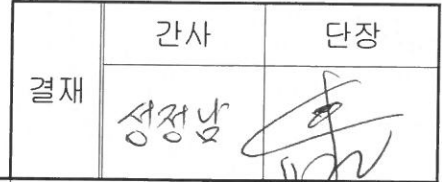 간사 단장
결재
성정남